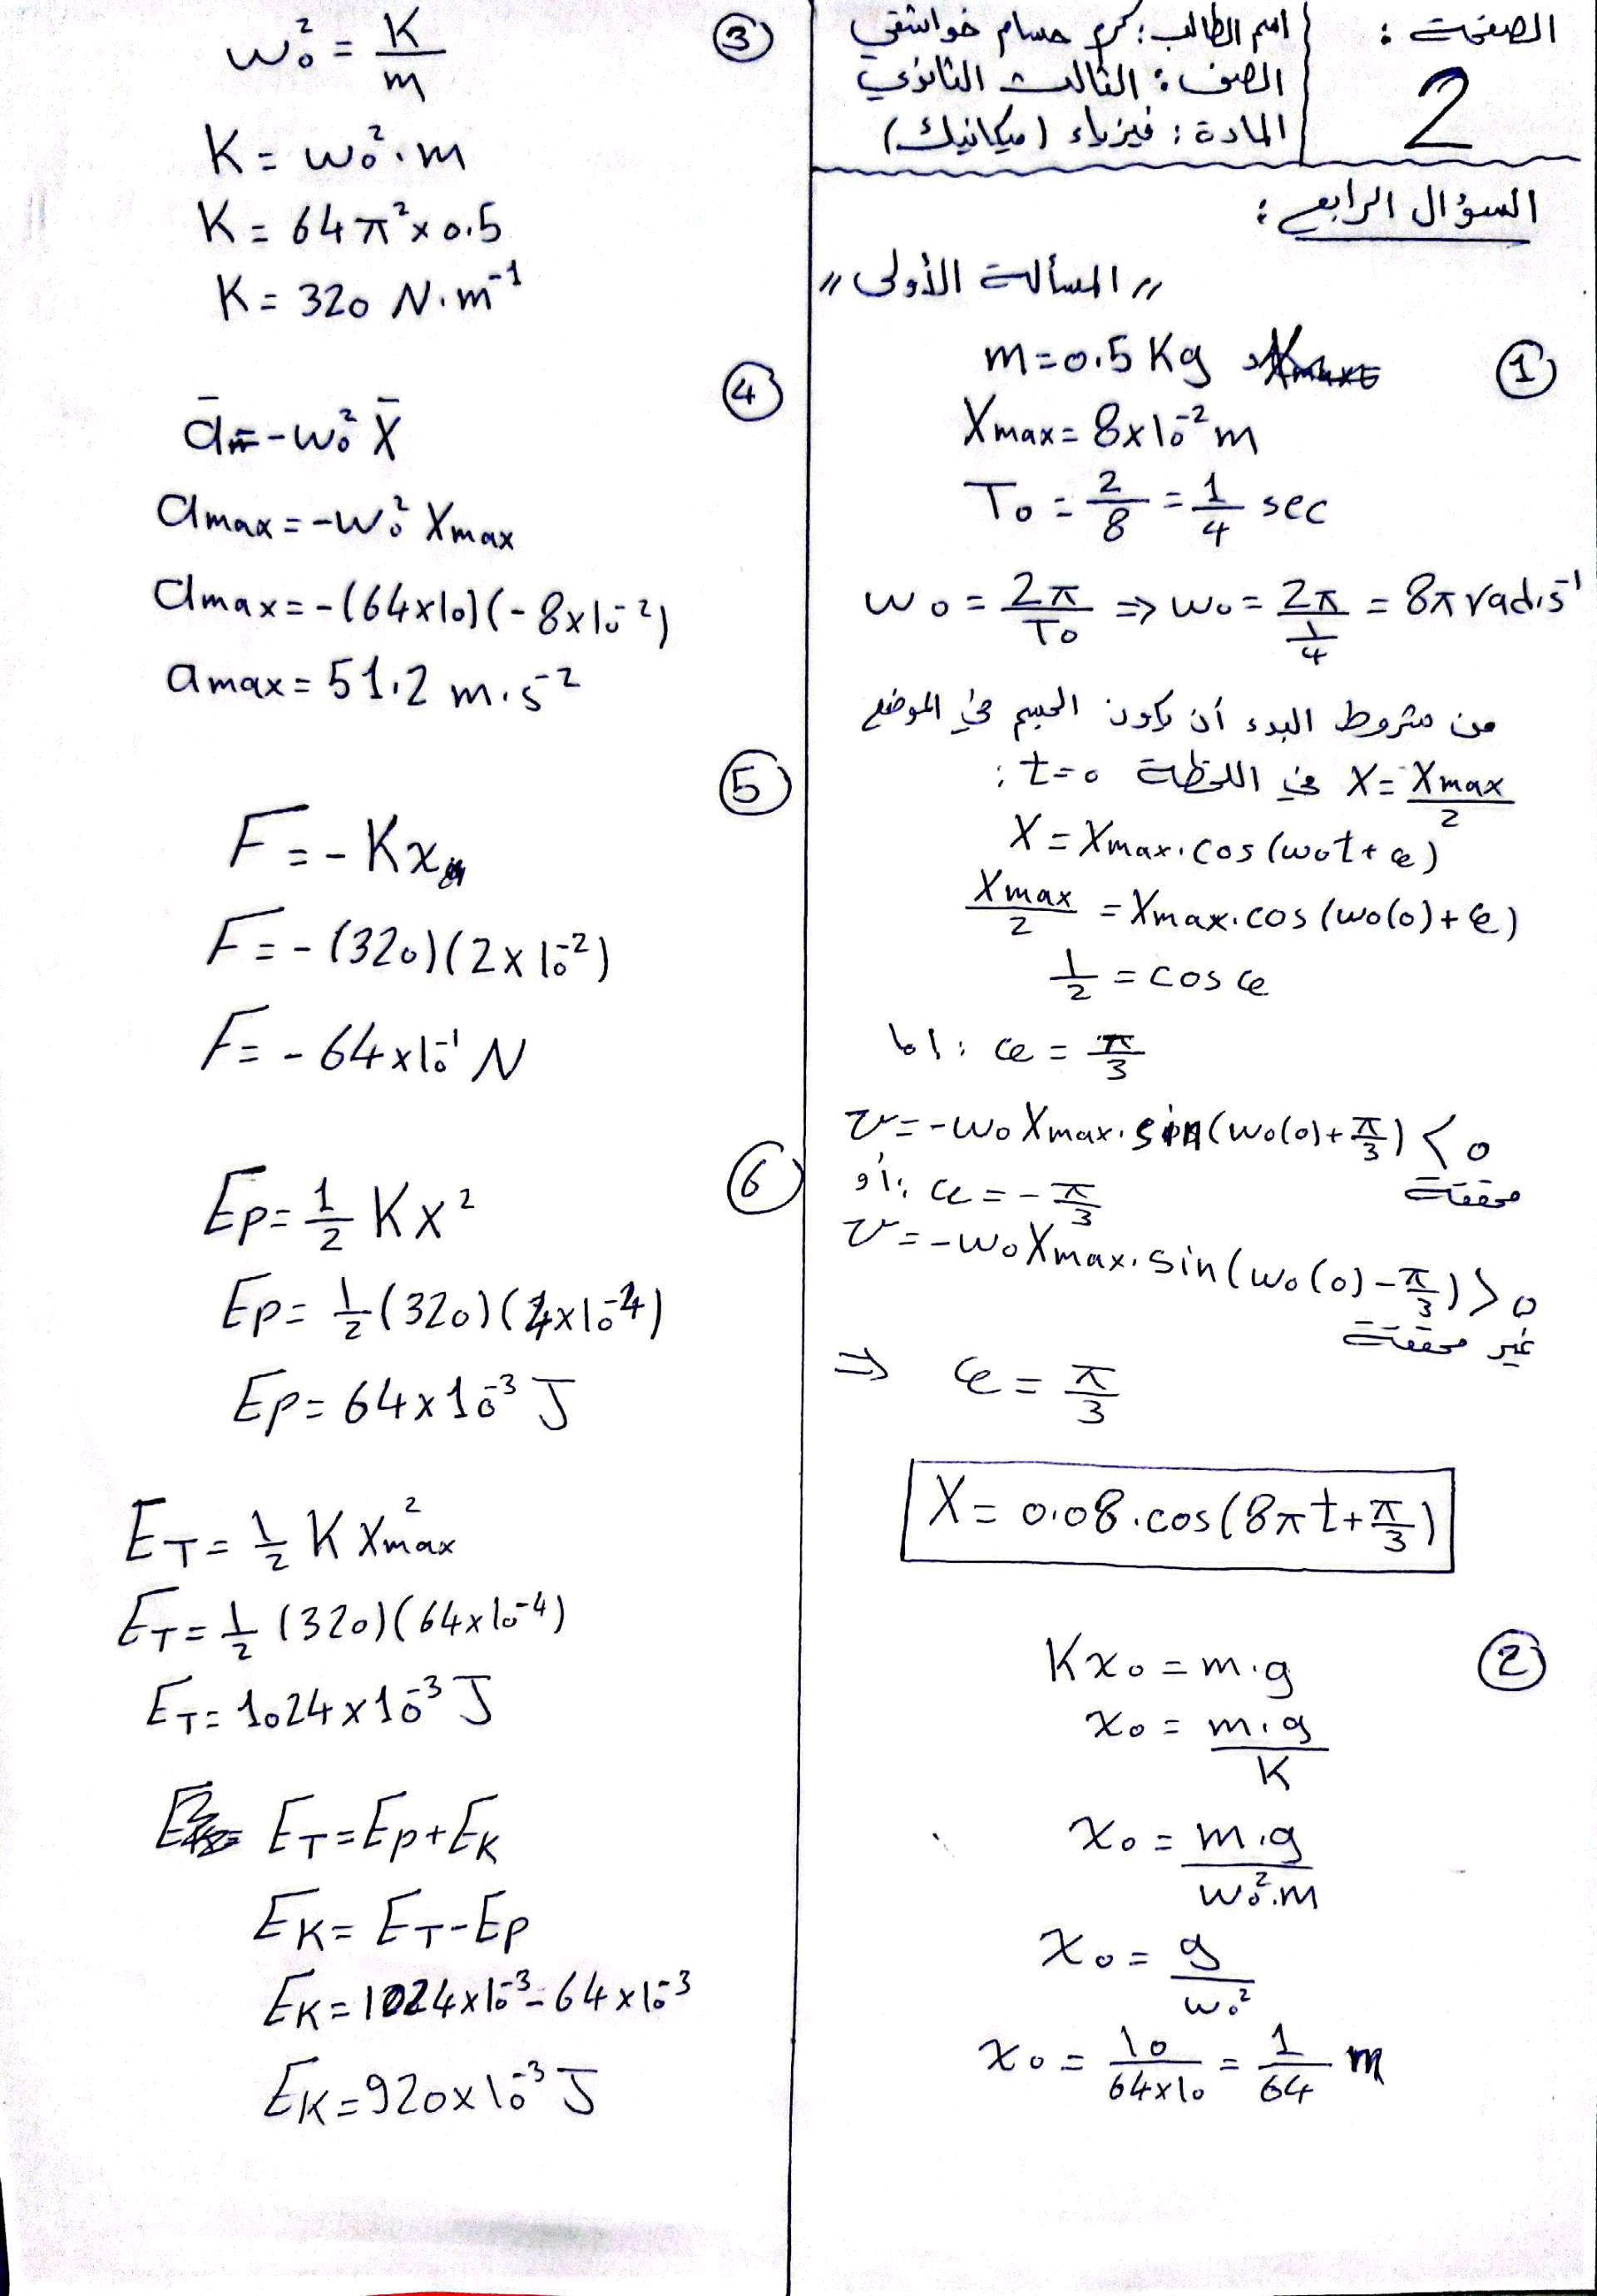 الصفحة :
2
اسم الطالب : كرم حسام خواشقي
الصف : الثالث الثانوي
المادة : فيزياء (ميكانيك)
السؤال الرابع :
" المسألة الأولى "
①
m = 0.5 Kg
Xmax = 8×10⁻² m
T₀ = 2/8 = 1/4 sec
ω₀ = 2π/T₀ ⇒ ω₀ = 2π/(1/4) = 8π rad.s⁻¹
من شروط البدء أن يكون الجسم في الموضع
X = Xmax/2 في اللحظة t=0 :
X = Xmax.cos(ω₀t+φ)
Xmax/2 = Xmax.cos(ω₀(0)+φ)
1/2 = cos φ
اما : φ = π/3
v = -ω₀Xmax.sin(ω₀(0)+π/3) < 0
محققة
أو : φ = -π/3
v = -ω₀Xmax.sin(ω₀(0)-π/3) > 0
غير محققة
⇒ φ = π/3
X = 0.08.cos(8πt+π/3)
②
Kx₀ = m.g
x₀ = m.g/K
x₀ = m.g/ω₀².m
x₀ = g/ω₀²
x₀ = 10/64×10 = 1/64 m
③
ω₀² = K/m
K = ω₀².m
K = 64π²×0.5
K = 320 N.m⁻¹
④
ā = -ω₀² X̄
amax = -ω₀² Xmax
amax = -(64×10)(-8×10⁻²)
amax = 51.2 m.s⁻²
⑤
F = -Kx
F = -(320)(2×10⁻²)
F = -64×10⁻¹ N
⑥
Ep = 1/2 Kx²
Ep = 1/2 (320)(4×10⁻⁴)
Ep = 64×10⁻³ J
E_T = 1/2 K Xmax²
E_T = 1/2 (320)(64×10⁻⁴)
E_T = 1024×10⁻³ J
E_T = Ep+E_K
E_K = E_T-Ep
E_K = 1024×10⁻³-64×10⁻³
E_K = 920×10⁻³ J